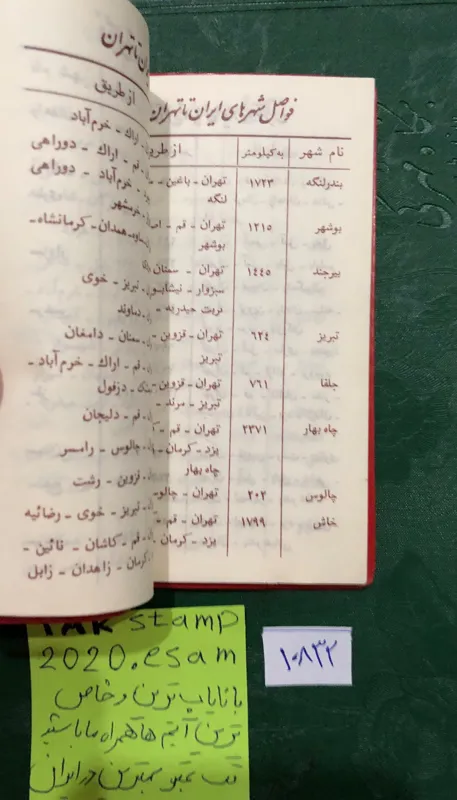 تا تهران
از طریق
اراك - خرم‌آباد
قم - اراك - دوراهی
خرم‌آباد - دوراهی
خرمشهر
ساوه - همدان - کرمانشاه -
تبریز - خوی
دماوند
سمنان - دامغان
قم - اراك - خرم‌آباد -
دزفول
قم - دلیجان
چالوس - رامسر
قزوین - رشت
تبریز - خوی - رضائیه
قم - کاشان - نائین -
کرمان - زاهدان - زابل
فواصل شهرهای ایران تا تهران
نام شهر به کیلومتر از طریق
بندرلنگه ۱۷۲۳ تهران - باغین -
لنگه
بوشهر ۱۲۱۵ تهران - قم -
بوشهر
بیرجند ۱۴۴۵ تهران - سمنان
سبزوار - نیشابور
تربت حیدریه -
تبریز ۶۲۴ تهران - قزوین -
تبریز
جلفا ۷۶۱ تهران - قزوین -
تبریز - مرند -
چاه بهار ۲۳۷۱ تهران - قم -
یزد - کرمان -
چاه بهار
چالوس ۲۰۲ تهران - چالوس
خاش ۱۷۹۹ تهران - قم -
یزد - کرمان
stamp
2020.esam
با نایاب ترین و خاص
ترین آیتم ها همراه ما باشید
تک تمبر بهترین در ایران
۱۰۸۳۲